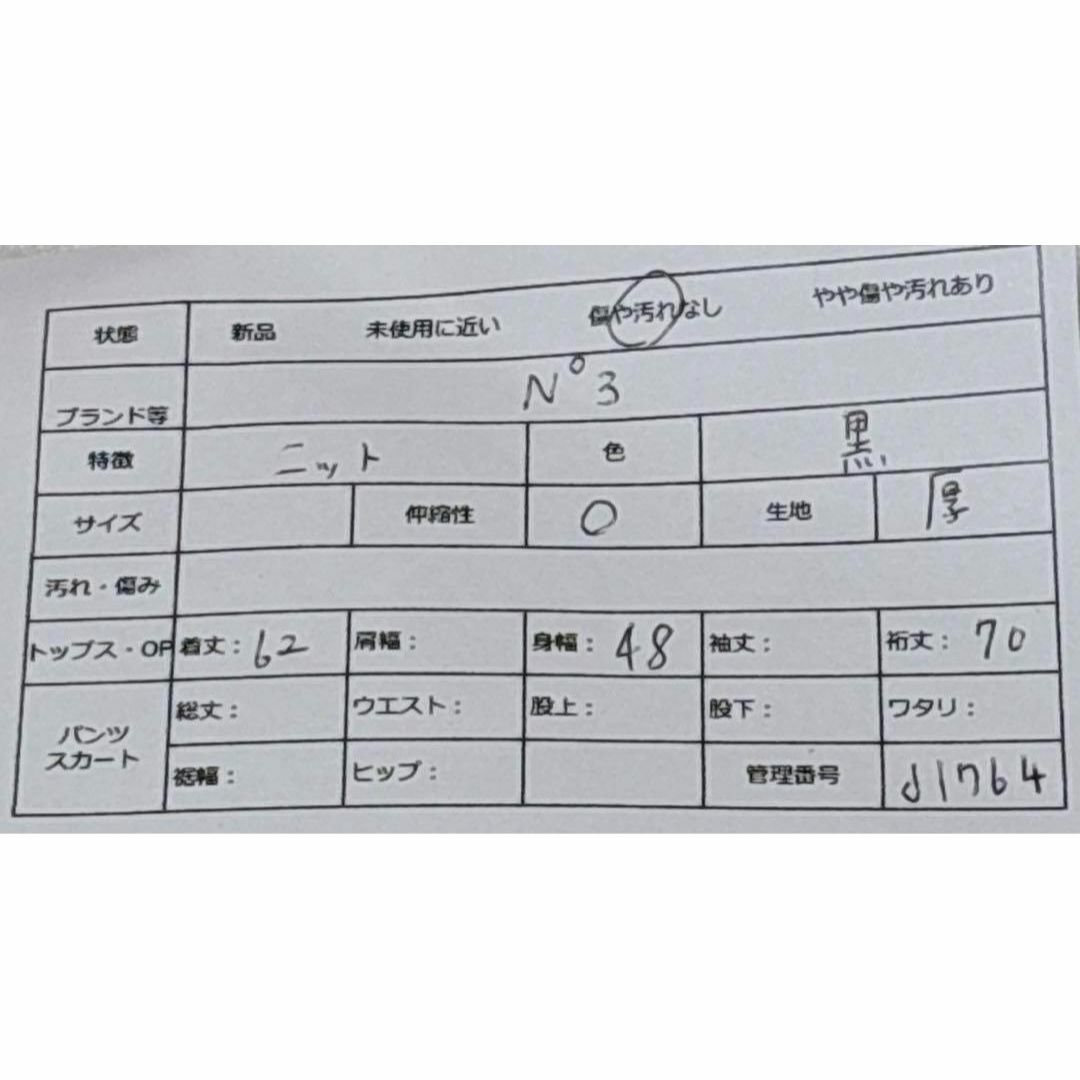 状態 新品 未使用に近い 傷や汚れなし やや傷や汚れあり
ブランド等 N°3
特徴 ニット 色 黒
サイズ 伸縮性 ○ 生地 厚
汚れ・傷み
トップス・OP 着丈：62 肩幅： 身幅：48 袖丈： 裄丈：70
パンツ
スカート
総丈： ウエスト： 股上： 股下： ワタリ：
裾幅： ヒップ： 管理番号 d1764